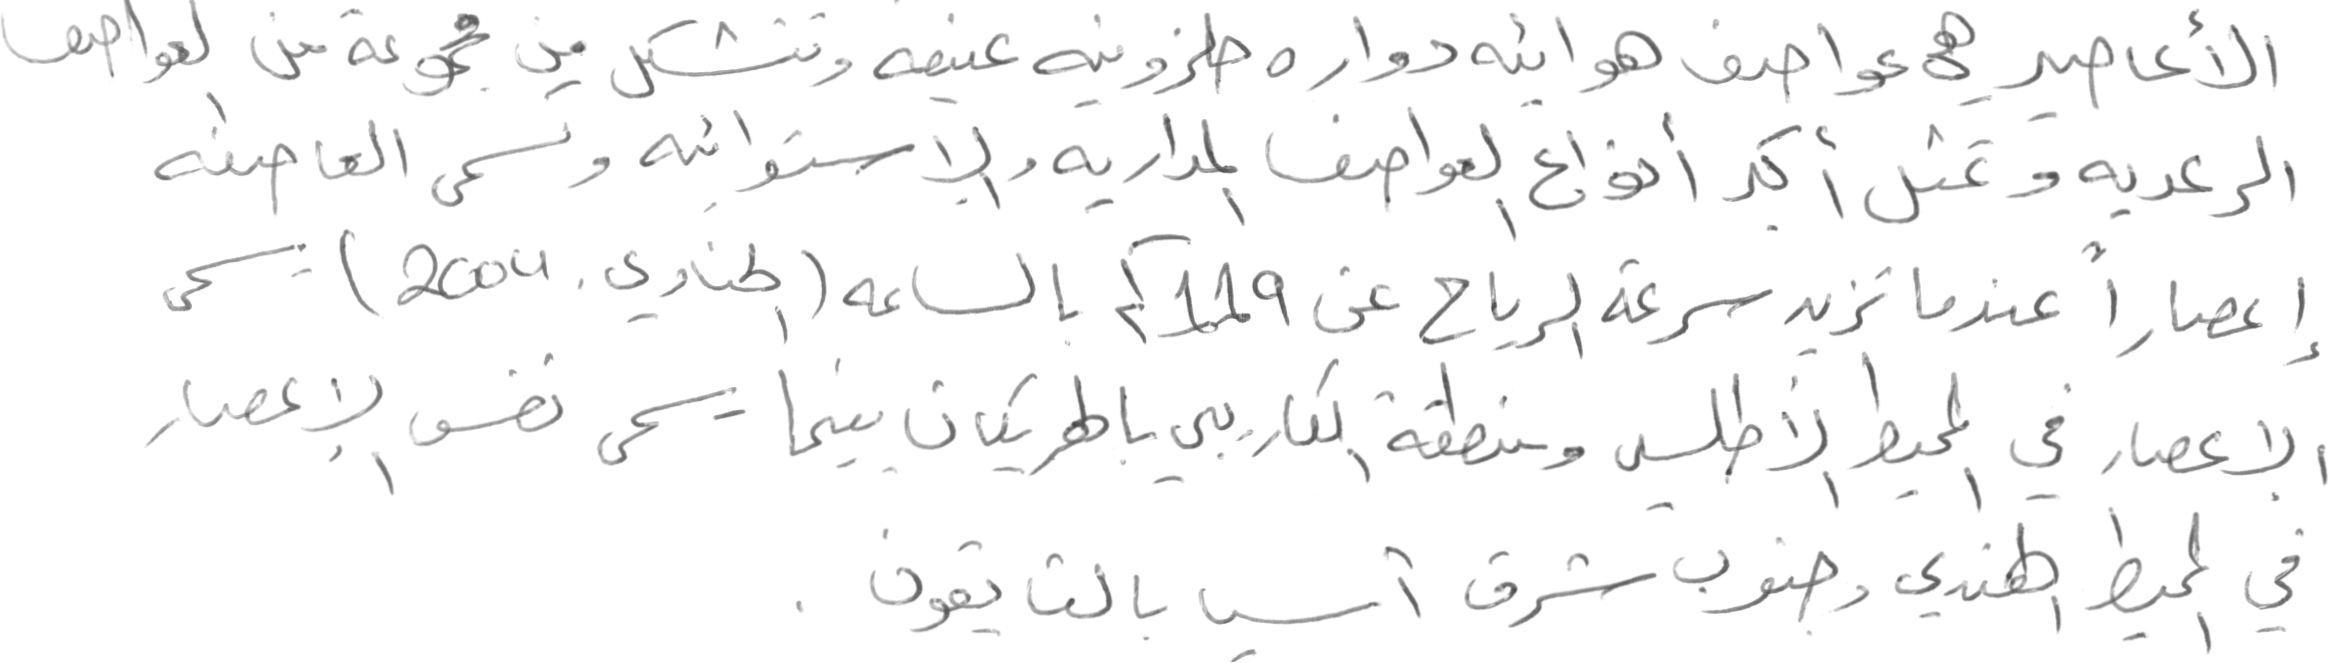 الأعاصير هي عواصف هوائيه دواره حلزونيه عنيفه وتتشكل من مجموعة من العواصف
الرعديه وتمثل أكبر أنواع العواصف المداريه والاستوائيه وتسمى العاصفه
إعصاراً عندما تزيد سرعة الرياح عن 119كم بالساعه (الحناوي، 2004) يسمى
الإعصار في المحيط الأطلسي ومنطقة الكاريبي بالهريكان بينما يسمى نفس الإعصار
في المحيط الهندي وجنوب شرق آسيا بالتايفون .